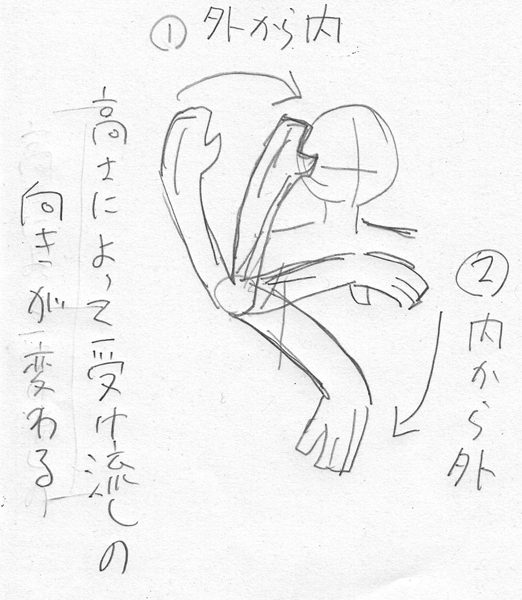 ① 外から内
② 内から外
高さによって受け流しの
向きが変わる